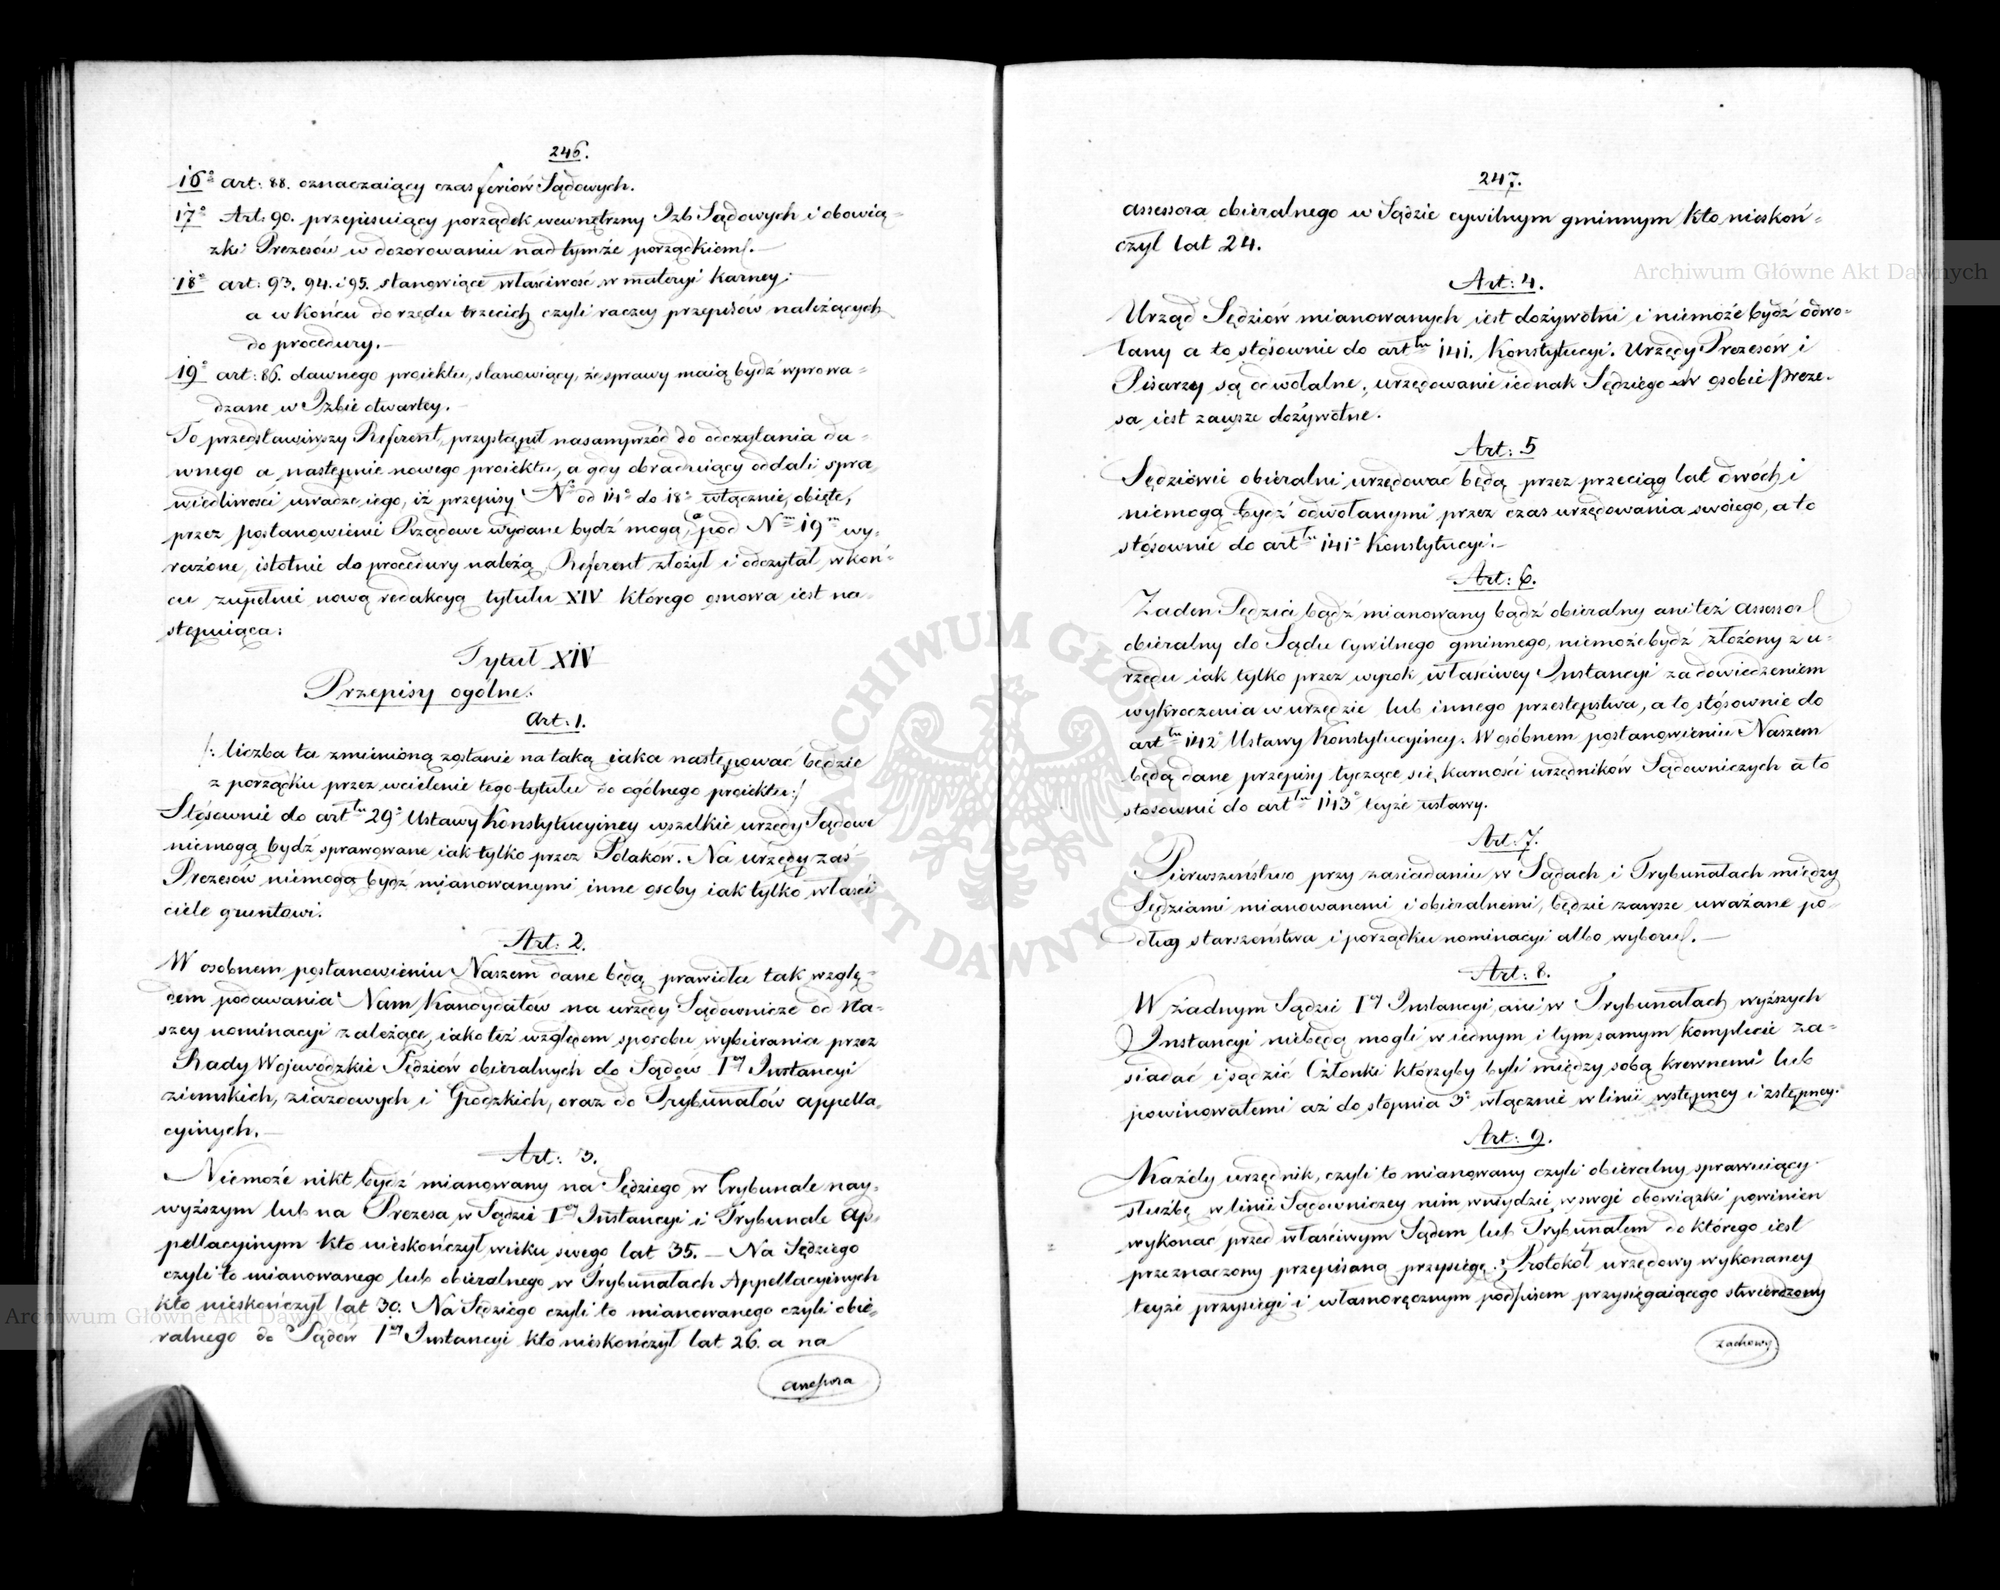 246.
16° art: 88. oznaczaiący czas feriów Sądowych.
17° Art: 90. przepisuiący porządek wewnętrzny Izb Sądowych i obowią-
zki Prezesów w dozorowaniu nad tymże porządkiem.—
18° art: 93. 94. i 95. stanowiące właściwość w materyi karney;
a w końcu do rzędu trzecich czyli raczey przepisów należących
do procedury.—
19° art: 86. dawnego proiektu, stanowiący, że sprawy maią bydź wprowa-
dzane w Izbie otwartey.—
To przedstawiwszy Referent, przystąpił nasamprzód do odczytania da-
wnego a następnie nowego proiektu, a gdy obraduiący oddali spra-
wiedliwości uwadze iego, iż przepisy N° od 14° do 18° włącznie, obięte,
przez postanowienie Rządowe wydane bydź mogą, a pod Nm 19m wy-
rażone, istotnie do procedury należą, Referent złożył i odczytał w koń-
cu zupełnie nową redakcyą tytułu XIV którego osnowa iest na-
stępuiąca:
Tytuł XIV
Przepisy ogólne.
Art: 1.
/: liczba ta zmienioną zostanie na taką iaka następować będzie
z porządku przez wcielenie tego tytułu do ogólnego proiektu :/
Stósownie do arttu 29° Ustawy Konstytucyiney wszelkie urzędy Sądowe
niemogą bydź sprawowane iak tylko przez Polaków. Na urzędy zaś
Prezesów niemogą bydź mianowanymi inne osoby iak tylko właści
ciele gruntowi.
Art: 2.
W osobnem postanowieniu Naszem dane będą prawidła tak wzglę-
dem podawania Nam Kandydatów na urzędy Sądownicze od Na-
szey nominacyi zależące, iako też względem sposobu wybierania przez
Rady Woiewódzkie Sędziów obieralnych do Sądów Iey Instancyi
ziemskich, ziazdowych i Grodzkich, oraz do Trybunałów appella-
cyinych.—
Art: 3.
Niemoże nikt bydź mianowany na Sędziego w Trybunale nay-
wyższym lub na Prezesa w Sądzie Iey Instancyi i Trybunale Ap-
pellacyinym kto nieskończył wieku swego lat 35. — Na Sędziego
czyli to mianowanego lub obieralnego w Trybunałach Appellacyinych
kto nieskończył lat 30. Na Sędziego czyli to mianowanego czyli obie-
ralnego do Sądów Iey Instancyi kto nieskończył lat 26. a na
assessora
247.
assessora obieralnego w Sądzie cywilnym gminnym kto nieskoń-
czył lat 24.
Art: 4.
Urząd Sędziów mianowanych iest dożywotni i niemoże bydź odwo-
łany a to stósownie do arttu 141. Konstytucyi. Urzędy Prezesów i
Pisarzy są odwołalne, urzędowanie iednak Sędziego w osobie Preze-
sa iest zawsze dożywotne.
Art: 5
Sędziowie obieralni urzędować będą przez przeciąg lat dwóch i
niemogą bydź odwołanymi przez czas urzędowania swoiego, a to
stósownie do arttu 141° Konstytucyi.—
Art: 6.
Żaden Sędzia bądź mianowany bądź obieralny ani też assessor
obieralny do Sądu Cywilnego gminnego, niemoże bydź złożony z u-
rzędu iak tylko przez wyrok właściwey Instancyi za dowiedzeniem
wykroczenia w urzędzie lub innego przestępstwa, a to stósownie do
arttu 142° Ustawy Konstytucyiney. W osóbnem postanowieniu Naszem
będą dane przepisy tyczące się karności urzędników Sądowniczych a to
stosownie do arttu 143° teyże ustawy.
Art: 7.
Pierwszeństwo przy zasiadaniu w Sądach i Trybunałach między
Sędziami mianowanemi i obieralnemi, będzie zawsze uważane po-
dług starszeństwa i porządku nominacyi albo wyboru.—
Art: 8.
W żadnym Sądzie Iey Instancyi ani w Trybunałach wyższych
Instancyi niebędą mogli w iednym i tym samym komplecie za-
siadać i sądzić Członki którzyby byli między sobą krewnemi lub
powinowatemi aż do stopnia 3° włącznie w linii wstępney i zstępney.
Art: 9.
Każdy urzędnik, czyli to mianowany czyli obieralny sprawuiący
służbę w linii Sądowniczey nim wniydzie w swoie obowiązki powinien
wykonać przed właściwym Sądem lub Trybunałem do którego iest
przeznaczony przepisaną przysięgę. Protokół urzędowy wykonaney
teyże przysięgi i własnoręcznym podpisem przysięgaiącego stwierdzony
zachowy
Archiwum Główne Akt Dawnych
Archiwum Główne Akt Dawnych
ARCHIWUM GŁÓWNE AKT DAWNYCH